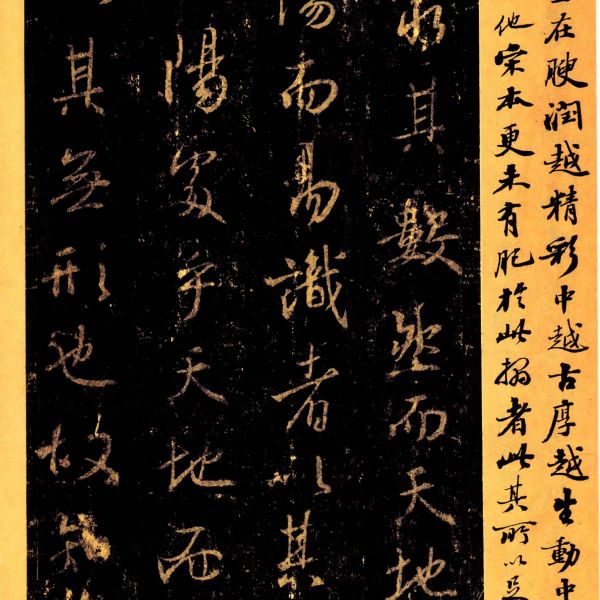 在腴潤越精彩中越古厚越生動中
他宋本更未有肥於此搨者此其所以
其數然而天地
陽而易識者以其
陽處乎天地而
其無形也故知